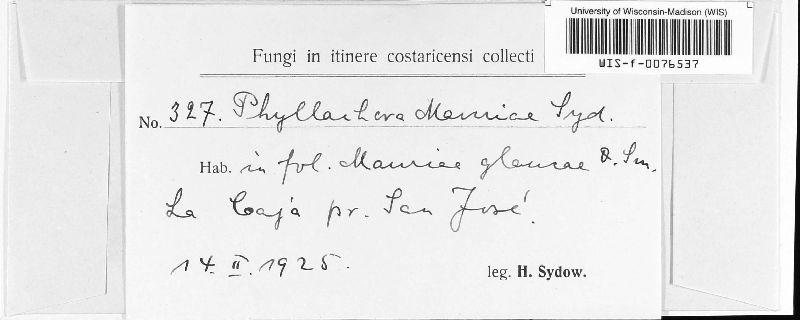 University of Wisconsin-Madison (WIS)
WIS-f-0076537
Fungi in itinere costaricensi collecti
No. 327. Phyllachora Mauriae Syd.
Hab. in fol. Mauriae glaucae D. Sm.
La Caja pr. San José.
14. II. 1925.
leg. H. Sydow.